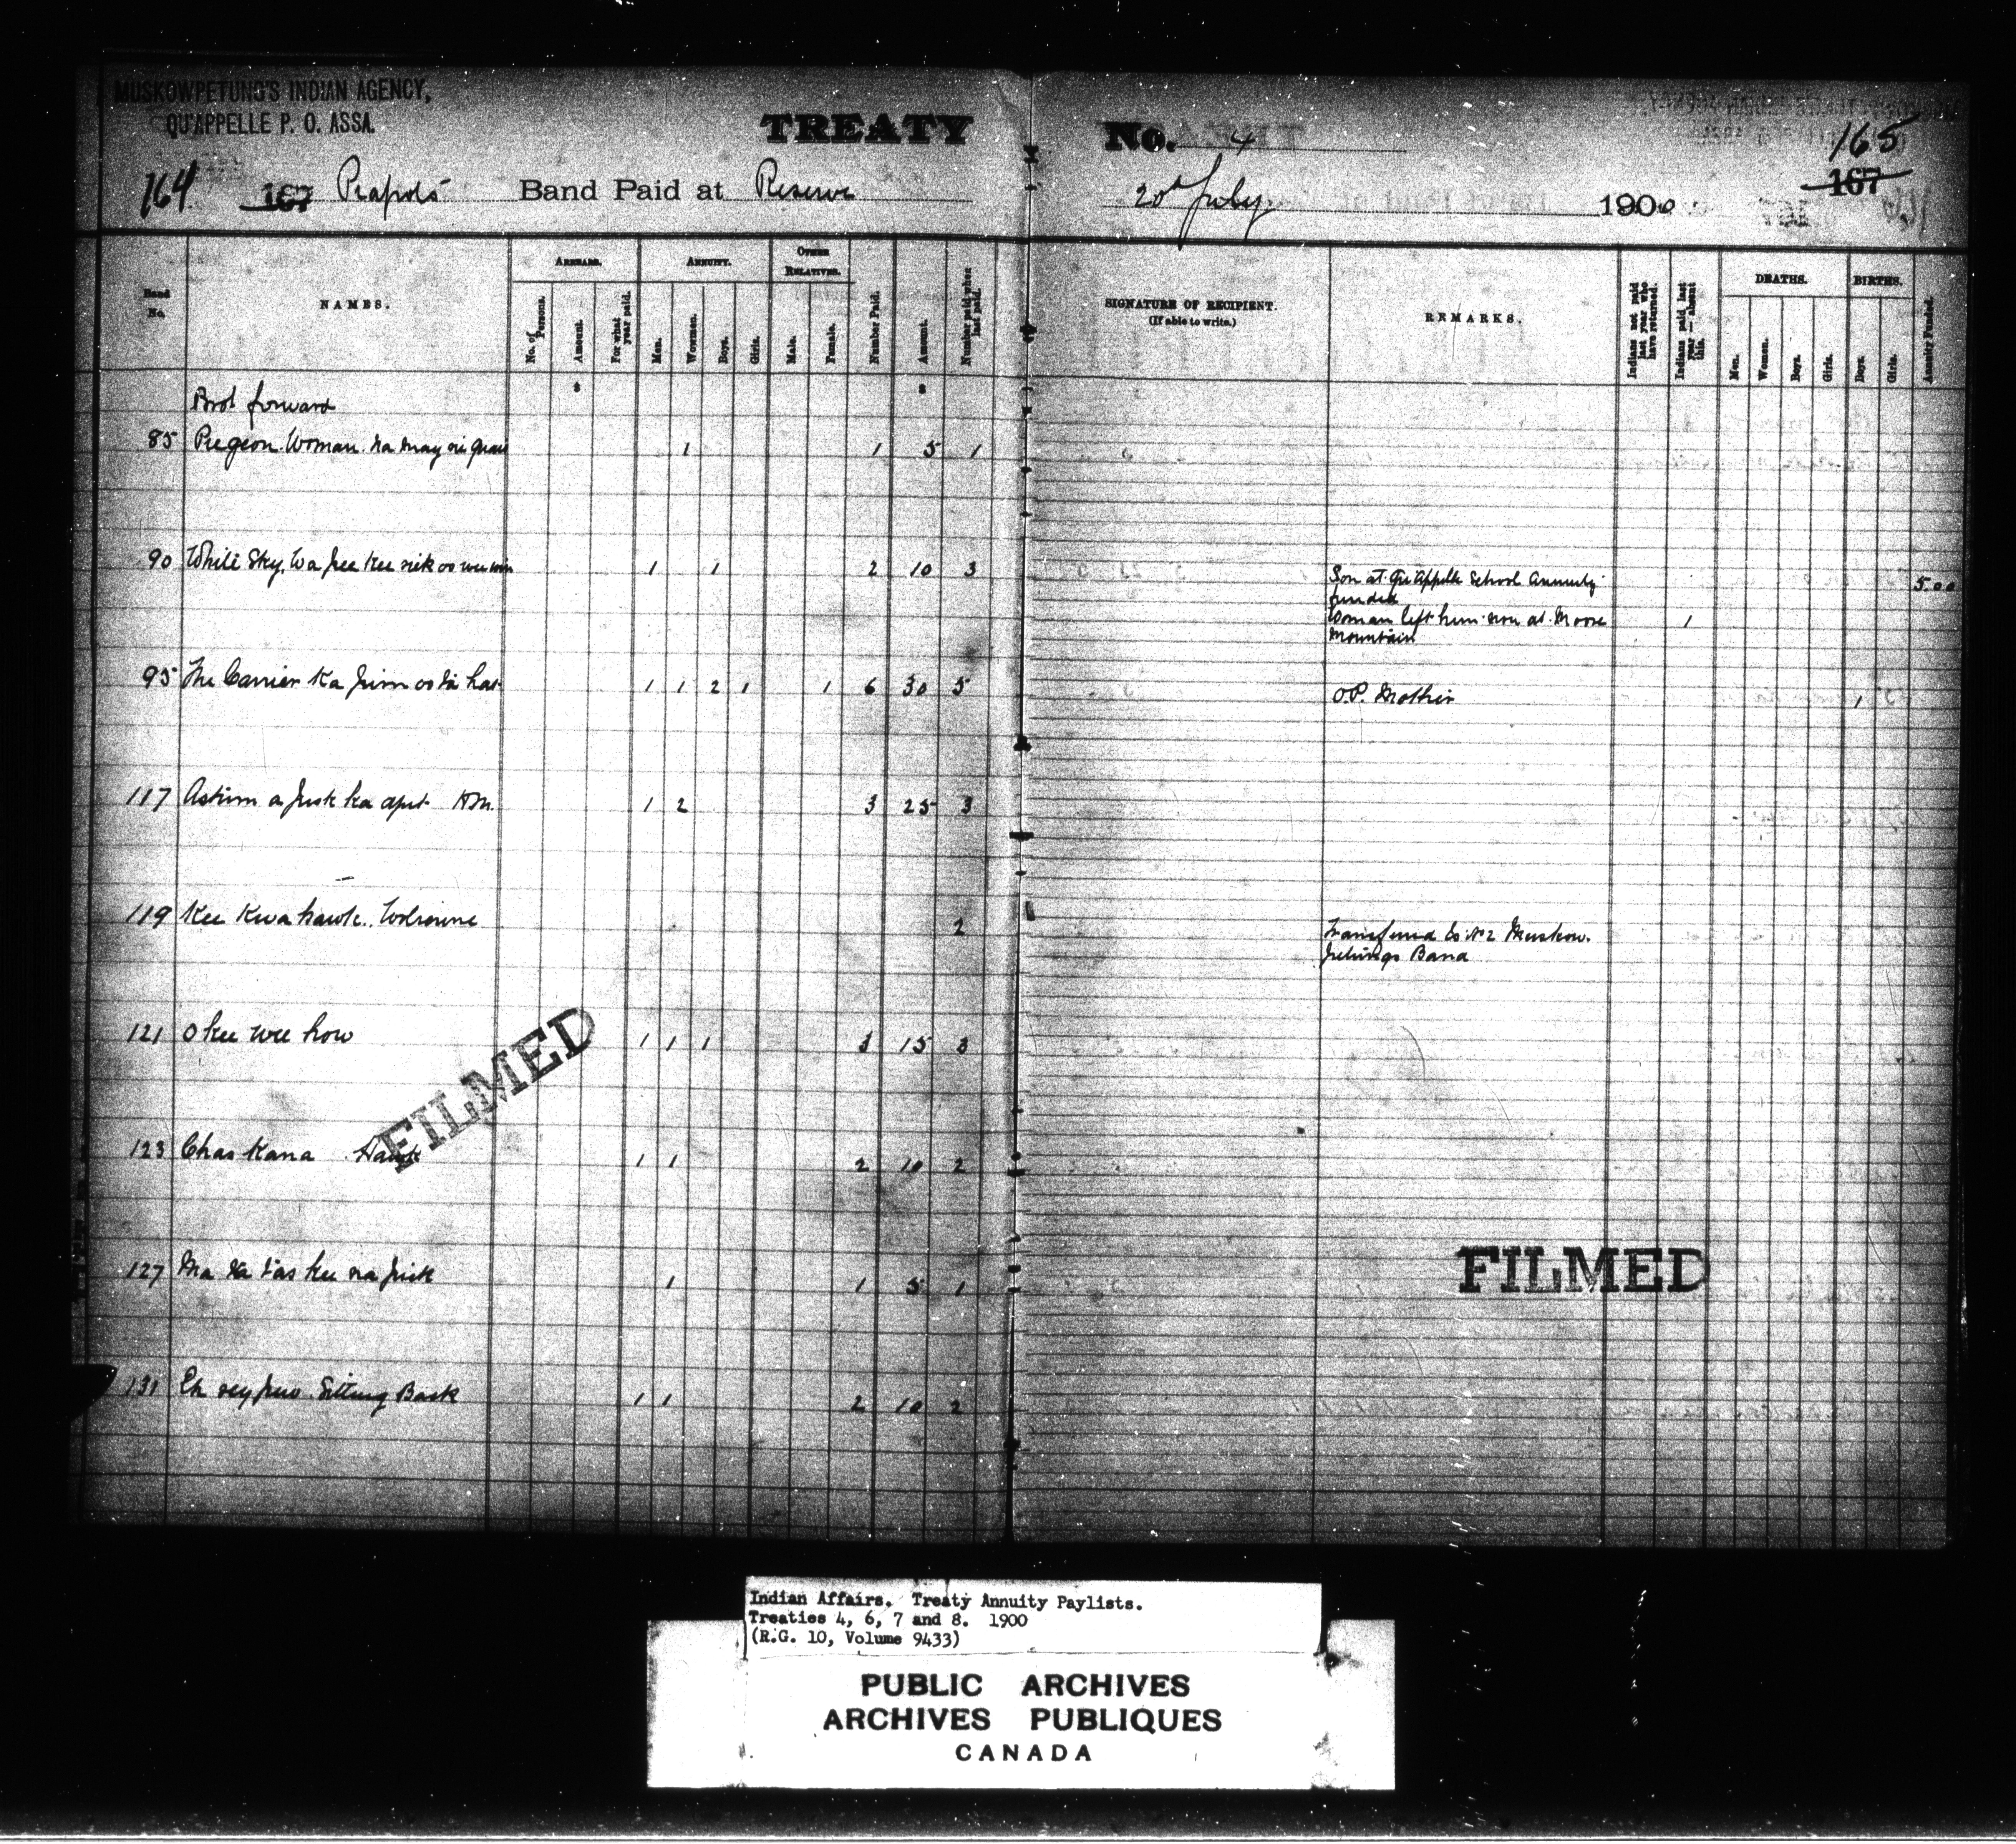 MUSKOWPETUNG'S INDIAN AGENCY,
QU'APPELLE P. O. ASSA.
TREATY No. 4
164 167 Piapots Band Paid at Reserve 20th July 1900 165 167
Band No.
NAMES.
ARREARS.
No. of Persons.
Amount.
For what year paid.
ANNUITY.
Men.
Women.
Boys.
Girls.
OTHER RELATIVES.
Male.
Female.
Number Paid.
Amount.
Number paid when last paid.
SIGNATURE OF RECIPIENT.
(If able to write.)
REMARKS.
Indians not paid last year who have returned.
Indians paid last year — absent this.
DEATHS.
Men.
Women.
Boys.
Girls.
BIRTHS.
Boys.
Girls.
Annuity Funded.
$ $
Brot forward
85 Pigeon Woman 1 1 5 1
90 White Sky 1 1 2 10 3
Son at Qu'Appelle School Annuity 5.00
funded
Woman left him now at Moose 1
Mountain
95 The Carrier 1 1 2 1 1 6 30 5 O.P. Mother 1
117 H.M. 1 2 3 25 3
119 Kee Kwa hawk. Wolverine 2 Transferred to No 2 Muskow.
petungs Band
121 O kee wee how 1 1 1 3 15 3
FILMED
123 Chas Kana Hawk 1 1 2 10 2
127 1 1 5 1
FILMED
131 Sitting Back 1 1 2 10 2
Indian Affairs. Treaty Annuity Paylists.
Treaties 4, 6, 7 and 8. 1900
(R.G. 10, Volume 9433)
PUBLIC ARCHIVES
ARCHIVES PUBLIQUES
CANADA